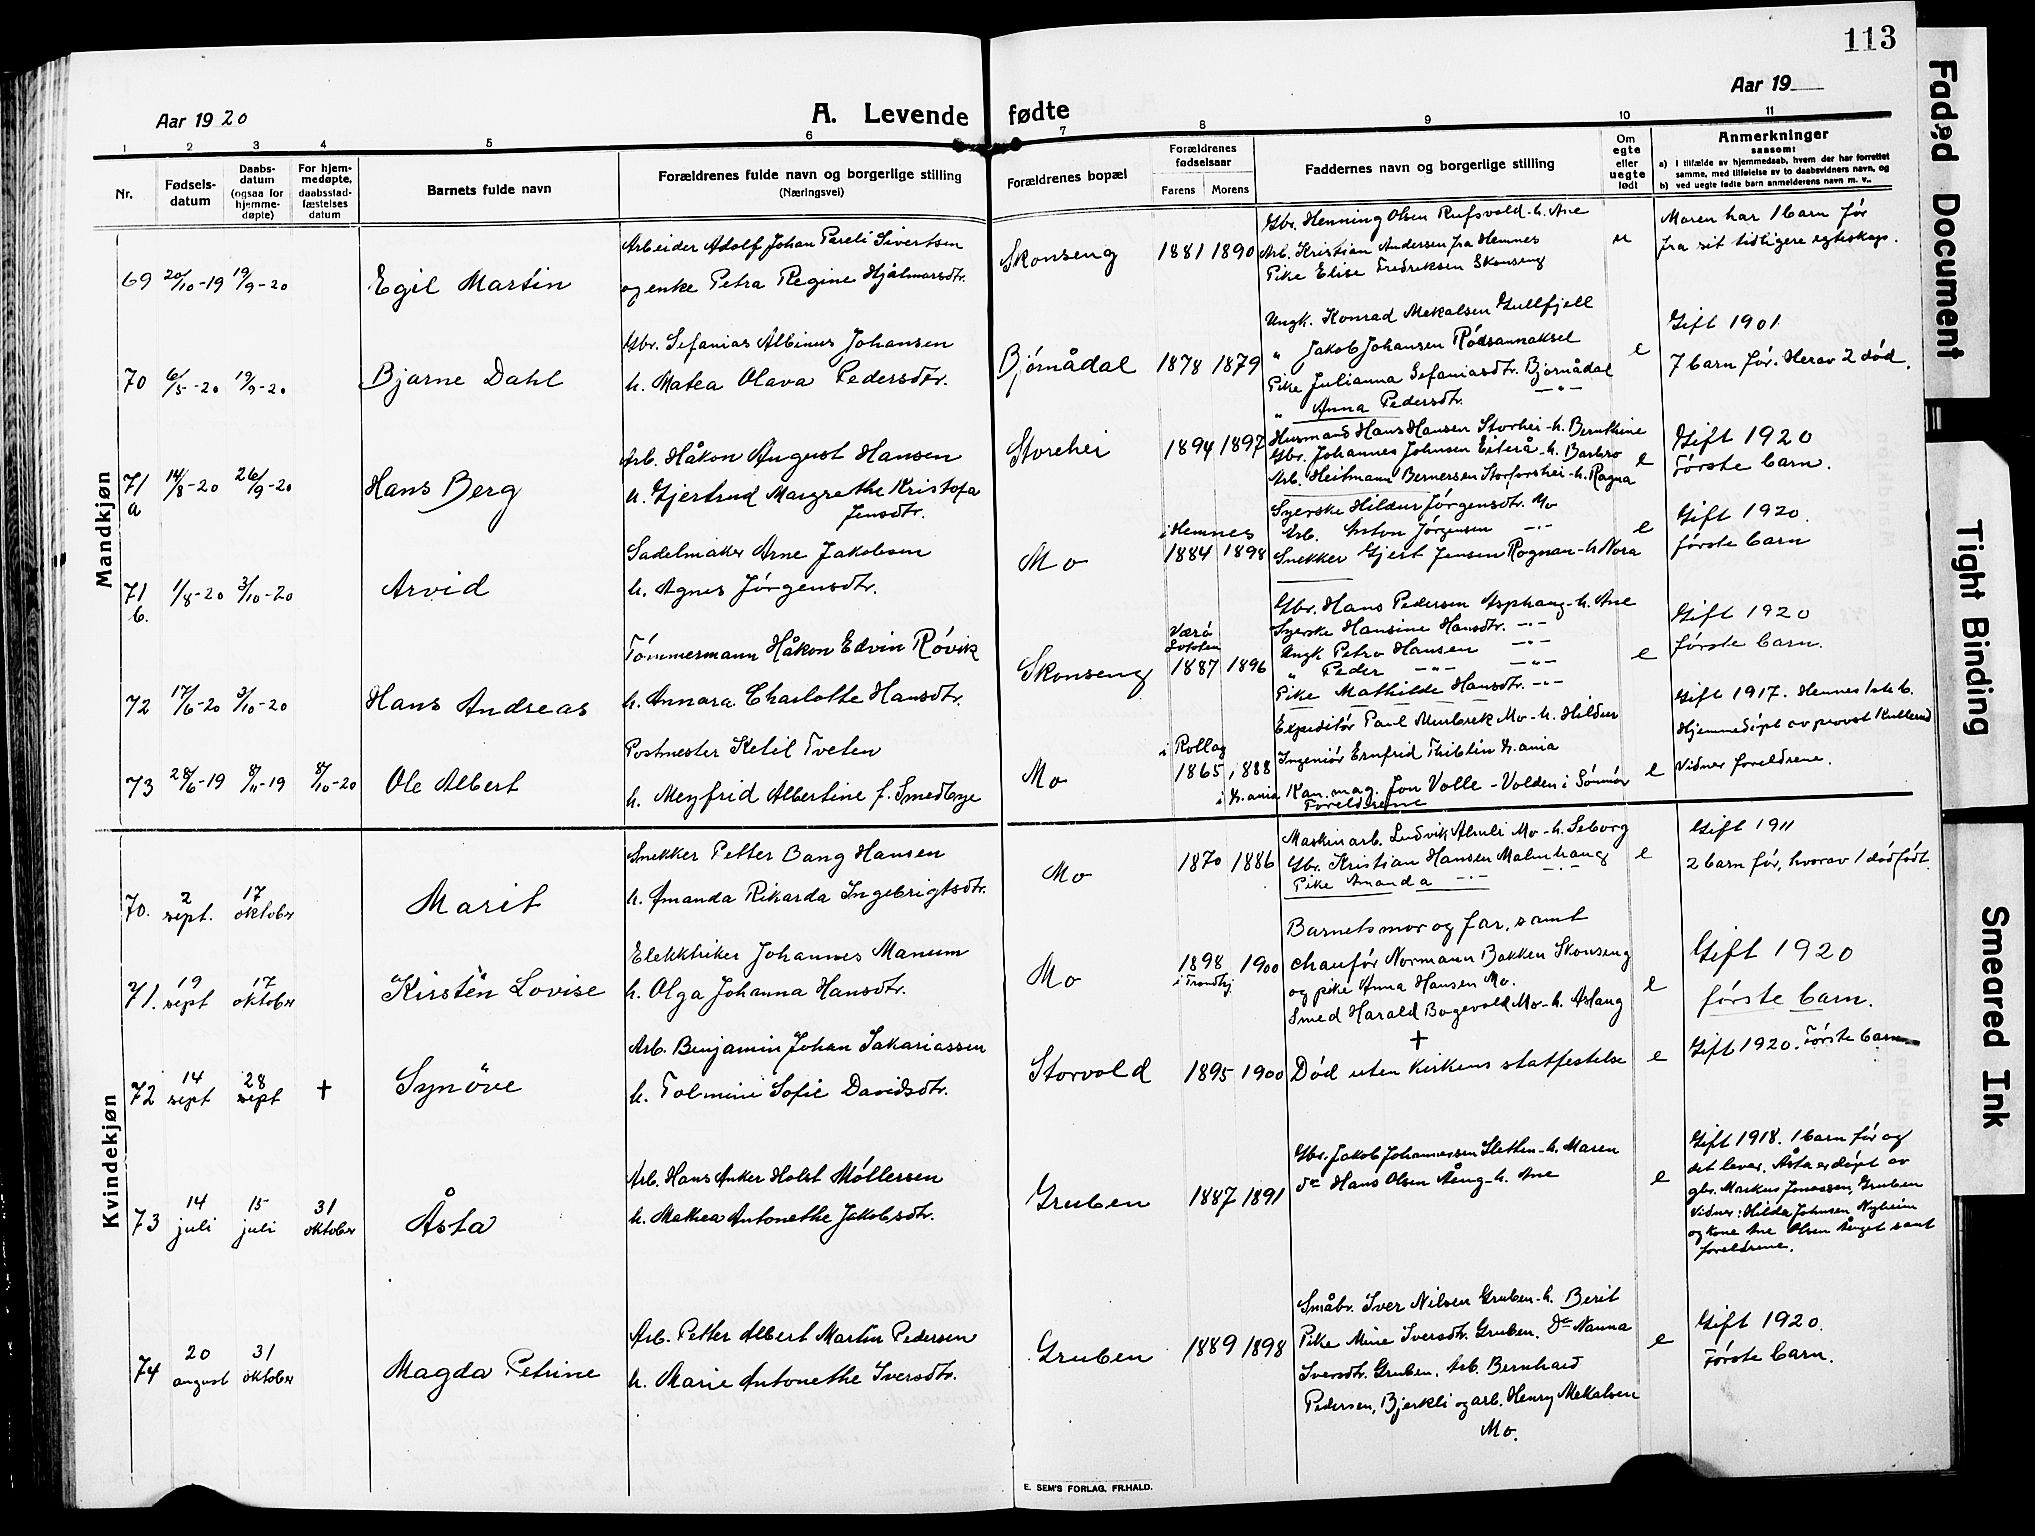 113
Aar 1920
A. Levende fødte
Aar 19
1 2 3 4 5 6 7 8 9 10 11
Nr.
Fødsels-
datum
Daabs-
datum
(ogsaa for
hjemme-
døpte)
For hjem-
medøpte,
daabsstad-
fæstelses
datum
Barnets fulde navn
Forældrenes fulde navn og borgerlige stilling
(Næringsvei)
Forældrenes bopæl
Forældrenes
fødselsaar
Farens Morens
Faddernes navn og borgerlige stilling
Om
egte
eller
uegte
født
Anmerkninger
saasom:
a) I tilfælde av hjemmedaab, hvem der har forrettet
samme, med tilføielse av to daabsvidners navn, og
b) ved uegte fødte barn anmelderens navn m. v..
Mandkjøn
69 20/10-19 19/9-20
Egil Martin
Arbeider Adolf Johan Pareli Sivertsen
og enke Petra Regine Hjalmarsdtr.
Skonseng
1881 1890
Gbr. Henning Olsen Rufsvold-h. Ane
Arb. Kristian Andersen fra Hemnes
Pike Elise Fredriksen Skonseng
u
Moren har 1 barn før
fra sit tidligere egteskap.
70 6/5-20 19/9-20
Bjarne Dahl
Gbr. Sefanias Albinus Johansen
h. Matea Olava Pedersdtr.
Bjørnådal
1878 1879
Ungk. Konrad Mekalsen Gullfjell
" Jakob Johansen Rødsannaksel
Pike Julianna Sefaniasdtr. Bjørnådal
" Anna Pedersdtr. -"-
e
Gift 1901.
7 barn før. Herav 2 død.
71
a
14/8-20 26/9-20
Hans Berg
Arb. Håkon August Hansen
h. Gjertrud Margrethe Kristofa
Jensdtr.
Storehei
1894 1897
Husmand Hans Hansen Storhei-h. Bernthine
Gbr. Johannes Johnsen Eiterå-h. Barbro
Arb. Heitmann Bernersen Storforshei-h. Ragna
e
Gift 1920
Første barn.
71
b.
1/8-20 3/10-20
Arvid
Sadelmaker Arne Jakobsen
h. Agnes Jørgensdtr.
Mo
i Hemnes
1884 1898
Syerske Hildur Jørgensdtr. Mo
Arb. Anton Jørgensen -"-
Snekker Gjert Jensen Rognan-h. Nora
e
Gift 1920.
første barn
72 17/6-20 3/10-20
Hans Andreas
Tømmermann Håkon Edvin Røvik
h. Annara Charlotte Hansdtr.
Skonseng
Værø
Lofoten
1887 1896
Gbr. Hans Pedersen Asphaug-h. Ane
Syerske Hansine Hansdtr. -"-
Ungk. Petro Hansen -"-
" Peder -"- -"-
Pike Mathilde Hansdtr. -"-
e
Gift 1920
første barn.
73 28/6-19 8/11-19 8/10-20
Ole Albert
Postmester Ketil Tveten
h. Meyfrid Albertine f. Smedbye
Mo
i Rollag
1865 1888
i Kr.ania
Expeditør Paul Meubrek Mo-h. Hildur
Ingeniør Ernfrid Thiblin Kr.ania
Kan. mag. Jon Volle - Volden i Sønmør
Foreldrene
e
Gift 1917. Hemnes 1ste b.
Hjemmedøpt av provst Kullerud
Vidner foreldrene.
Kvindekjøn
70. 2 sept. 17 oktober
Marit
Snekker Petter Bang Hansen
h. Amanda Rikarda Ingebrigtsdtr.
Mo
1870 1886
Maskinarb. Ludvik Alsuli Mo-h. Seborg
Gbr. Kristian Hansen Malmhaug
Pike Amanda -"- -"-
e
Gift 1911
2 barn før, hvorav 1 dødfødt
71. 19 sept 17 oktober
Kirsten Lovise
Elektriker Johannes Manum
h. Olga Johanna Hansdtr.
Mo
1898 1900
i Trondhj.
Barnets mor og far, samt
chaufør Normann Bakken Skonseng
og pike Anna Hansen Mo.
Smed Harald Bogevold Mo-h. Aslaug
e
Gift 1920
første barn.
72 14 sept 28 sept †
Synöve
Arb. Benjamin Johan Sakariassen
h. Tolmine Sofie Davidsdtr.
Storvold
1895 1900
†
Død uten kirkens statfestelse
e
Gift 1920. Første barn
73 14 juli 15 juli 31 oktober
Åsta
Arb. Hans Anker Holst Møllersen
h. Mathea Antonethe Jakobsdtr.
Gruben
1887 1891
Gbr. Jakob Johannessen Sletten-h. Maren
do Hans Olsen Åeng-h. Ane
e
Gift 1918. 1 barn før og
det lever. Åsta er døpt av
gbr. Markus Jonassen, Gruben
Vidner: Hilda Johnsen Nyheim
og kone Ane Olsen Ænget samt
foreldrene.
74 20 august 31 oktober
Magda Petrine
Arb. Petter Albert Martin Pedersen
h. Marie Antonethe Iversdtr.
Gruben
1889 1898
Småbr. Iver Nilsen Gruben-h. Berit
Pike Mine Iversdtr. Gruben. do Nanna
Iversdtr. Gruben. Arb. Bernhard
Pedersen, Bjerkli og arb. Henry Mekalsen
Mo.
e
Gift 1920.
Første barn.
E. SEM'S FORLAG, FR.HALD.
Faded Document
Tight Binding
Smeared Ink